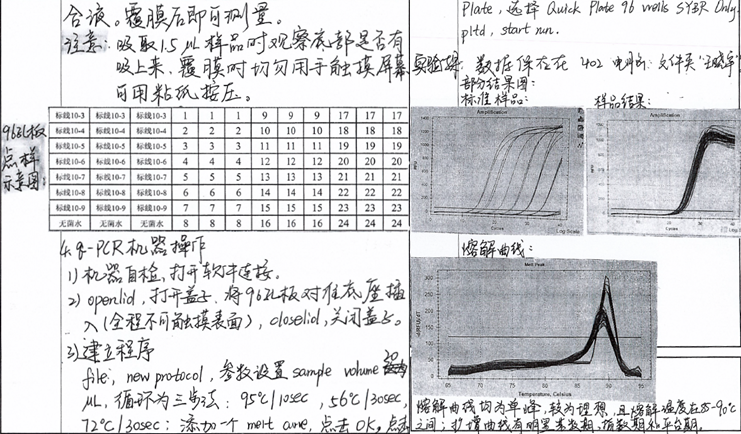 合液。覆膜后即可测量。
注意：吸取1.5 μL样品时观察底部是否有
吸上来，覆膜时切勿用手触摸屏幕
可用粘纸按压。
96孔板
点样
示意图：
标线10-3 标线10-3 标线10-3 1 1 1 9 9 9 17 17 17
标线10-4 标线10-4 标线10-4 2 2 2 10 10 10 18 18 18
标线10-5 标线10-5 标线10-5 3 3 3 11 11 11 19 19 19
标线10-6 标线10-6 标线10-6 4 4 4 12 12 12 20 20 20
标线10-7 标线10-7 标线10-7 5 5 5 13 13 13 21 21 21
标线10-8 标线10-8 标线10-8 6 6 6 14 14 14 22 22 22
标线10-9 标线10-9 标线10-9 7 7 7 15 15 15 23 23 23
无菌水 无菌水 无菌水 8 8 8 16 16 16 24 24 24
4. q-PCR机器操作
1) 机器自检，打开软件连接。
2) openlid，打开盖子，将96孔板对准底座插
入（全程不可触摸表面），closelid，关闭盖子。
3) 建立程序
file，new protocol，参数设置 sample volume 20
μL，循环为三步法：95℃/10sec，56℃/30sec，
72℃/30sec；添加个melt curve，点击OK，点击
Plate，选择 Quick Plate 96 wells SYBR Only.
pltd，start run.
数据保存在402电脑：文件夹
部分结果图：
标准样品：
样品结果：
Amplification
Cycles
Log Scale
Amplification
Cycles
溶解曲线：
Melt Peak
Temperature, Celsius
65 70 75 80 85 90 95
溶解曲线均为单峰，较为理想，且溶解温度在85-90℃
之间；扩增曲线有明显基数期、指数期和平台期。